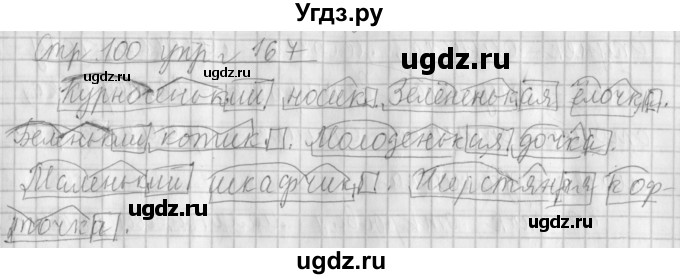 Угдз.ру
Стр 100 упр 167
ugdz.ru
ugdz.ru
Курносенький носик. Зелёненькая ёлочка.
ugdz.ru
ugdz.ru
Беленький котик. Молоденькая дочка.
ugdz.ru
ugdz.ru
Маленький шкафчик. Шерстяная коф-
ugdz.ru
точка.
ugdz.ru